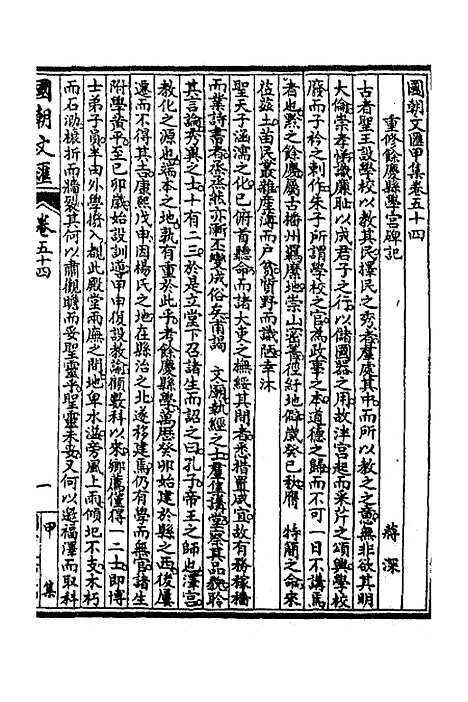 國朝文匯甲集卷五十四
重修餘慶縣學宮碑記
蔣深
古者聖王設學校以教其民擇民之秀者羣處其中而所以教之之意無非欲其明
大倫崇孝悌識廉恥以成君子之行以儲國器之用故泮宮起而采芹之頌興學校
廢而子衿之刺作朱子所謂學校之官為政事之本道德之歸而不可一日不講焉
者也黔之餘慶屬古播州羈縻地崇山密菁徑紆地僻歲癸巳秋膺 特簡之命來
莅茲土苗民叢雜產薄而戶貧質野而識陋幸沐
聖天子涵濡之化已俯首聽命而諸大吏之撫綏其間者悉措置咸宜故有務稼穡
而業詩書者烝烝然亦漸不變成俗矣甫謁 文廟執經之士羣集講堂察其品貌聆
其言論秀異之士十有二三於是立堂下召諸生而詔之曰孔子帝王之師也澤宮
教化之源也端本之地孰有重於此乎考餘慶縣學萬歷癸卯始建於縣之西後屢
遷而不得其吉康熙戊申因楊氏之地在縣治之北遂移建焉仍有學而無官諸生
附學黃平至己卯歲始設訓導甲申復設教諭顧數科以來鄉薦僅得一二士即博
士弟子員半由外學攙入覩此殿堂兩廡之間地卑水溢旁風上雨傾圯不支木朽
而石泐榱折而牆裂其何以肅觀瞻而妥聖靈乎聖靈未妥又何以邀福澤而取科
國朝文匯
卷五十四
一
甲集